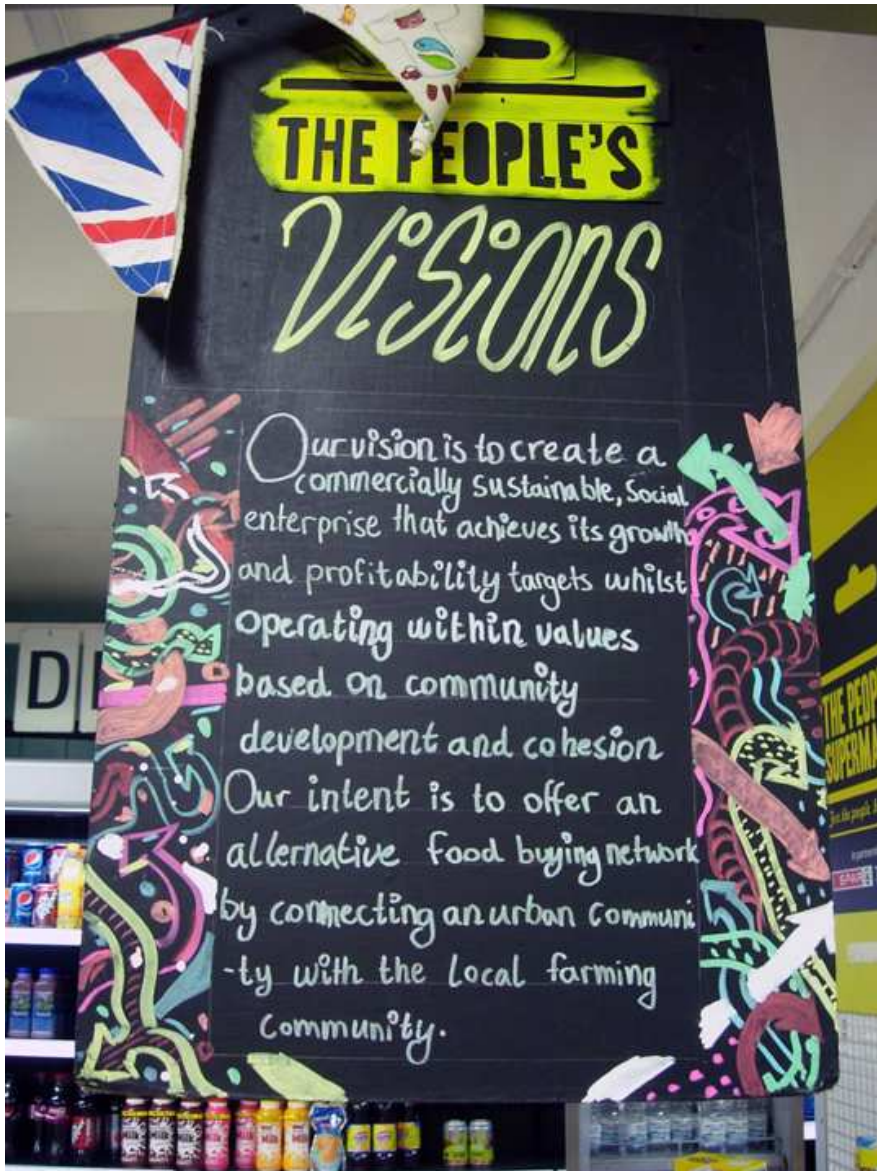 THE PEOPLE'S
Visions
Our vision is to create a
commercially sustainable, Social
enterprise that achieves its growth
and profitability targets whilst
operating within values
based on community
development and cohesion
Our intent is to offer an
allernative food buying network
by connecting an urban communi
-ty with the local farming
community.
D
THE PEOP
SUPERMA
for the people
SPAR